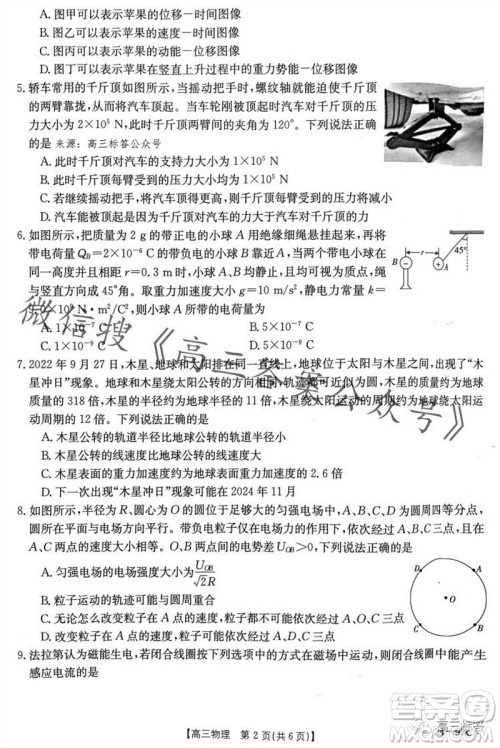 A. 图甲可以表示苹果的位移—时间图像
B. 图乙可以表示苹果的速度—时间图像
C. 图丙可以表示苹果的动能—位移图像
D. 图丁可以表示苹果在竖直上升过程中的重力势能—位移图像
5. 轿车常用的千斤顶如图所示,当摇动把手时,螺纹轴就能迫使千斤顶
的两臂靠拢,从而将汽车顶起。当车轮刚被顶起时汽车对千斤顶的压
力大小为 2×10⁵ N,此时千斤顶两臂间的夹角为 120°。下列说法正确
的是 来源:高三标答公众号
A. 此时千斤顶对汽车的支持力大小为 1×10⁵ N
B. 此时千斤顶两臂受到的压力大小均为 2×10⁵ N
C. 若继续摇动把手,将汽车顶起,千斤顶两臂受到的压力将增大
D. 汽车能被千斤顶顶起的原因是汽车对千斤顶的力小于千斤顶对汽车的力
6. 如图所示,把质量为 2 g 的带正电的小球 A 用绝缘细绳悬挂起来,再将
带电荷量 Q_B=2×10⁻⁶ C 的带负电的小球 B 靠近 A,当两小球在同一
高度且相距 r=0.3 m 时,小球 A、B 均静止,且均可视为点电荷,此时绳
与竖直方向成 45°角。取重力加速度大小 g=10 m/s²,静电力常量 k=
9.0×10⁹ N·m²/C²,则小球 A 所带的电荷量为
A. 1×10⁻⁷ C
B. 5×10⁻⁷ C
B
r
A
45°
7. 2022 年 9 月 27 日,木星、地球和太阳排在同一直线上,地球位于太阳与木星之间,出现了“木
星冲日”现象。地球和木星绕太阳公转的方向相同,轨迹都可近似为圆,木星质量约为地球质
量的 318 倍,木星半径约为地球半径的 11 倍,木星绕太阳运动的周期约为地球绕太阳运
动周期的 12 倍。下列说法正确的是
A. 木星公转的轨道半径比地球公转的轨道半径小
B. 木星公转的线速度比地球公转的线速度大
C. 木星表面的重力加速度约为地球表面重力加速度的 2.6 倍
D. 下一次出现“木星冲日”现象可能在 2024 年 11 月
8. 如图所示,半径为 R、圆心为 O 的圆位于竖直平面内,A、B、C、D 为圆周四等分点,匀强电
场的方向与圆平面平行。
A. 匀强电场的电场强度大小为 U_OB/√2R
B. 粒子运动的轨迹可能与圆周重合
C. 无论怎么改变粒子在 O 点的速度大小和方向,粒子都不可能依次经过 A、C 三点
D. 改变粒子在 O 点的速度大小和方向,可能使粒子依次经过 A、O、C 三点
B
A
O
C
D
9. 法拉第认为磁能生电,若闭合线圈按下列选项中的方式在磁场中运动,则闭合线圈中能产生
感应电流的是
【高三物理 第 2 页(共 6 页)】
微信搜《高三答案公众号》